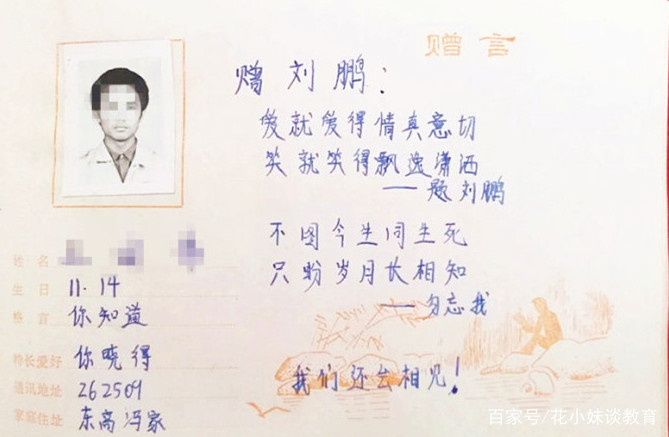 赠言
赠刘鹏：
爱就爱得情真意切
笑就笑得飘逸潇洒
——题刘鹏
不图今生同生死
只盼岁月长相知
——勿忘我
我们还会相见！
姓名
生日 11.14
格言 你知道
特长爱好 你晓得
通讯地址 262509
家庭住址 东高冯家
百家号/花小妹谈教育